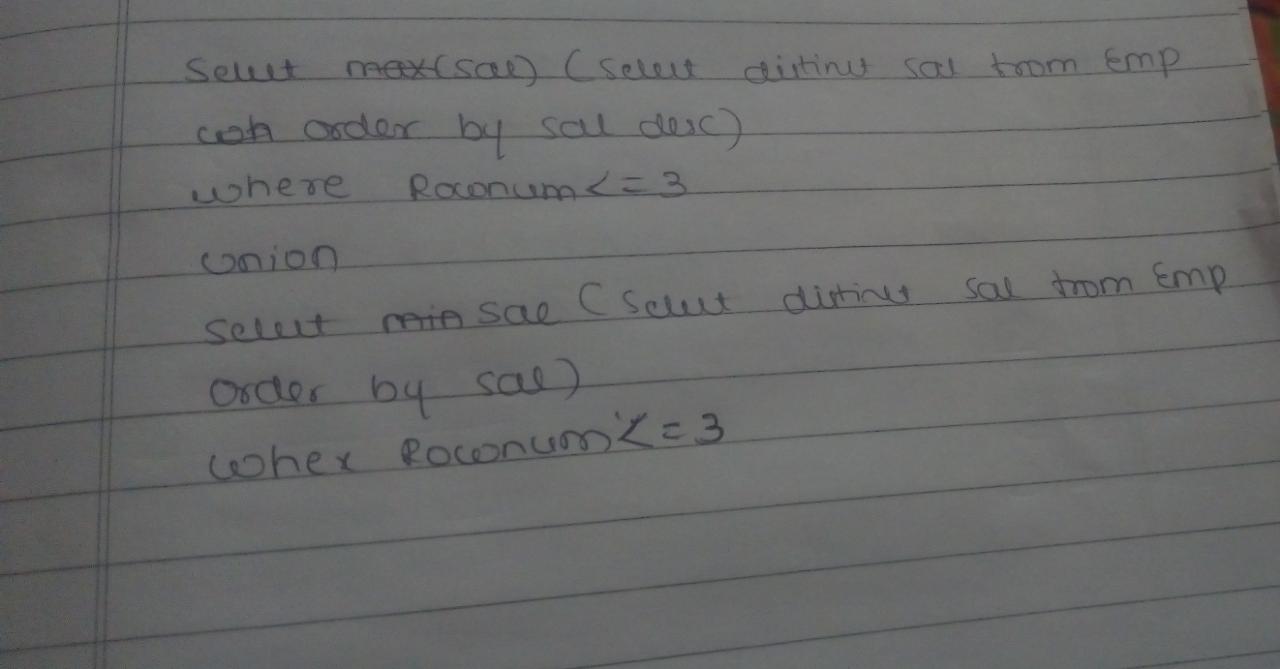 Select max(sal) (Select distinct sal from Emp
order by sal desc)
where Rownum<=3
union
Select min sal (Select distinct sal from Emp
order by sal)
wher Rownum<=3